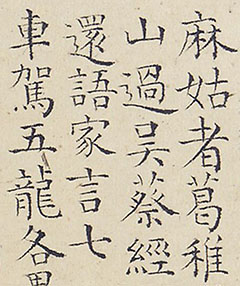 麻姑者葛稚
山過吴蔡經
還語家言七
車駕五龍各異